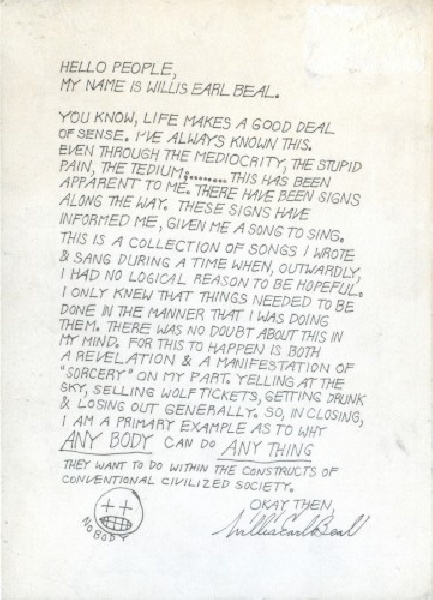 HELLO PEOPLE,
MY NAME IS WILLIS EARL BEAL.
YOU KNOW, LIFE MAKES A GOOD DEAL
OF SENSE. I'VE ALWAYS KNOWN THIS.
EVEN THROUGH THE MEDIOCRITY, THE STUPID
PAIN, THE TEDIUM;........ THIS HAS BEEN
APPARENT TO ME. THERE HAVE BEEN SIGNS
ALONG THE WAY. THESE SIGNS HAVE
INFORMED ME, GIVEN ME A SONG TO SING.
THIS IS A COLLECTION OF SONGS I WROTE
& SANG DURING A TIME WHEN, OUTWARDLY,
I HAD NO LOGICAL REASON TO BE HOPEFUL.
I ONLY KNEW THAT THINGS NEEDED TO BE
DONE IN THE MANNER THAT I WAS DOING
THEM. THERE WAS NO DOUBT ABOUT THIS IN
MY MIND. FOR THIS TO HAPPEN IS BOTH
A REVELATION & A MANIFESTATION OF
"SORCERY" ON MY PART. YELLING AT THE
SKY, SELLING WOLF TICKETS, GETTING DRUNK
& LOSING OUT GENERALLY. SO, IN CLOSING,
I AM A PRIMARY EXAMPLE AS TO WHY
ANY BODY CAN DO ANY THING
THEY WANT TO DO WITHIN THE CONSTRUCTS OF
CONVENTIONAL CIVILIZED SOCIETY.
OKAY THEN,
Willis Earl Beal
NOBODY